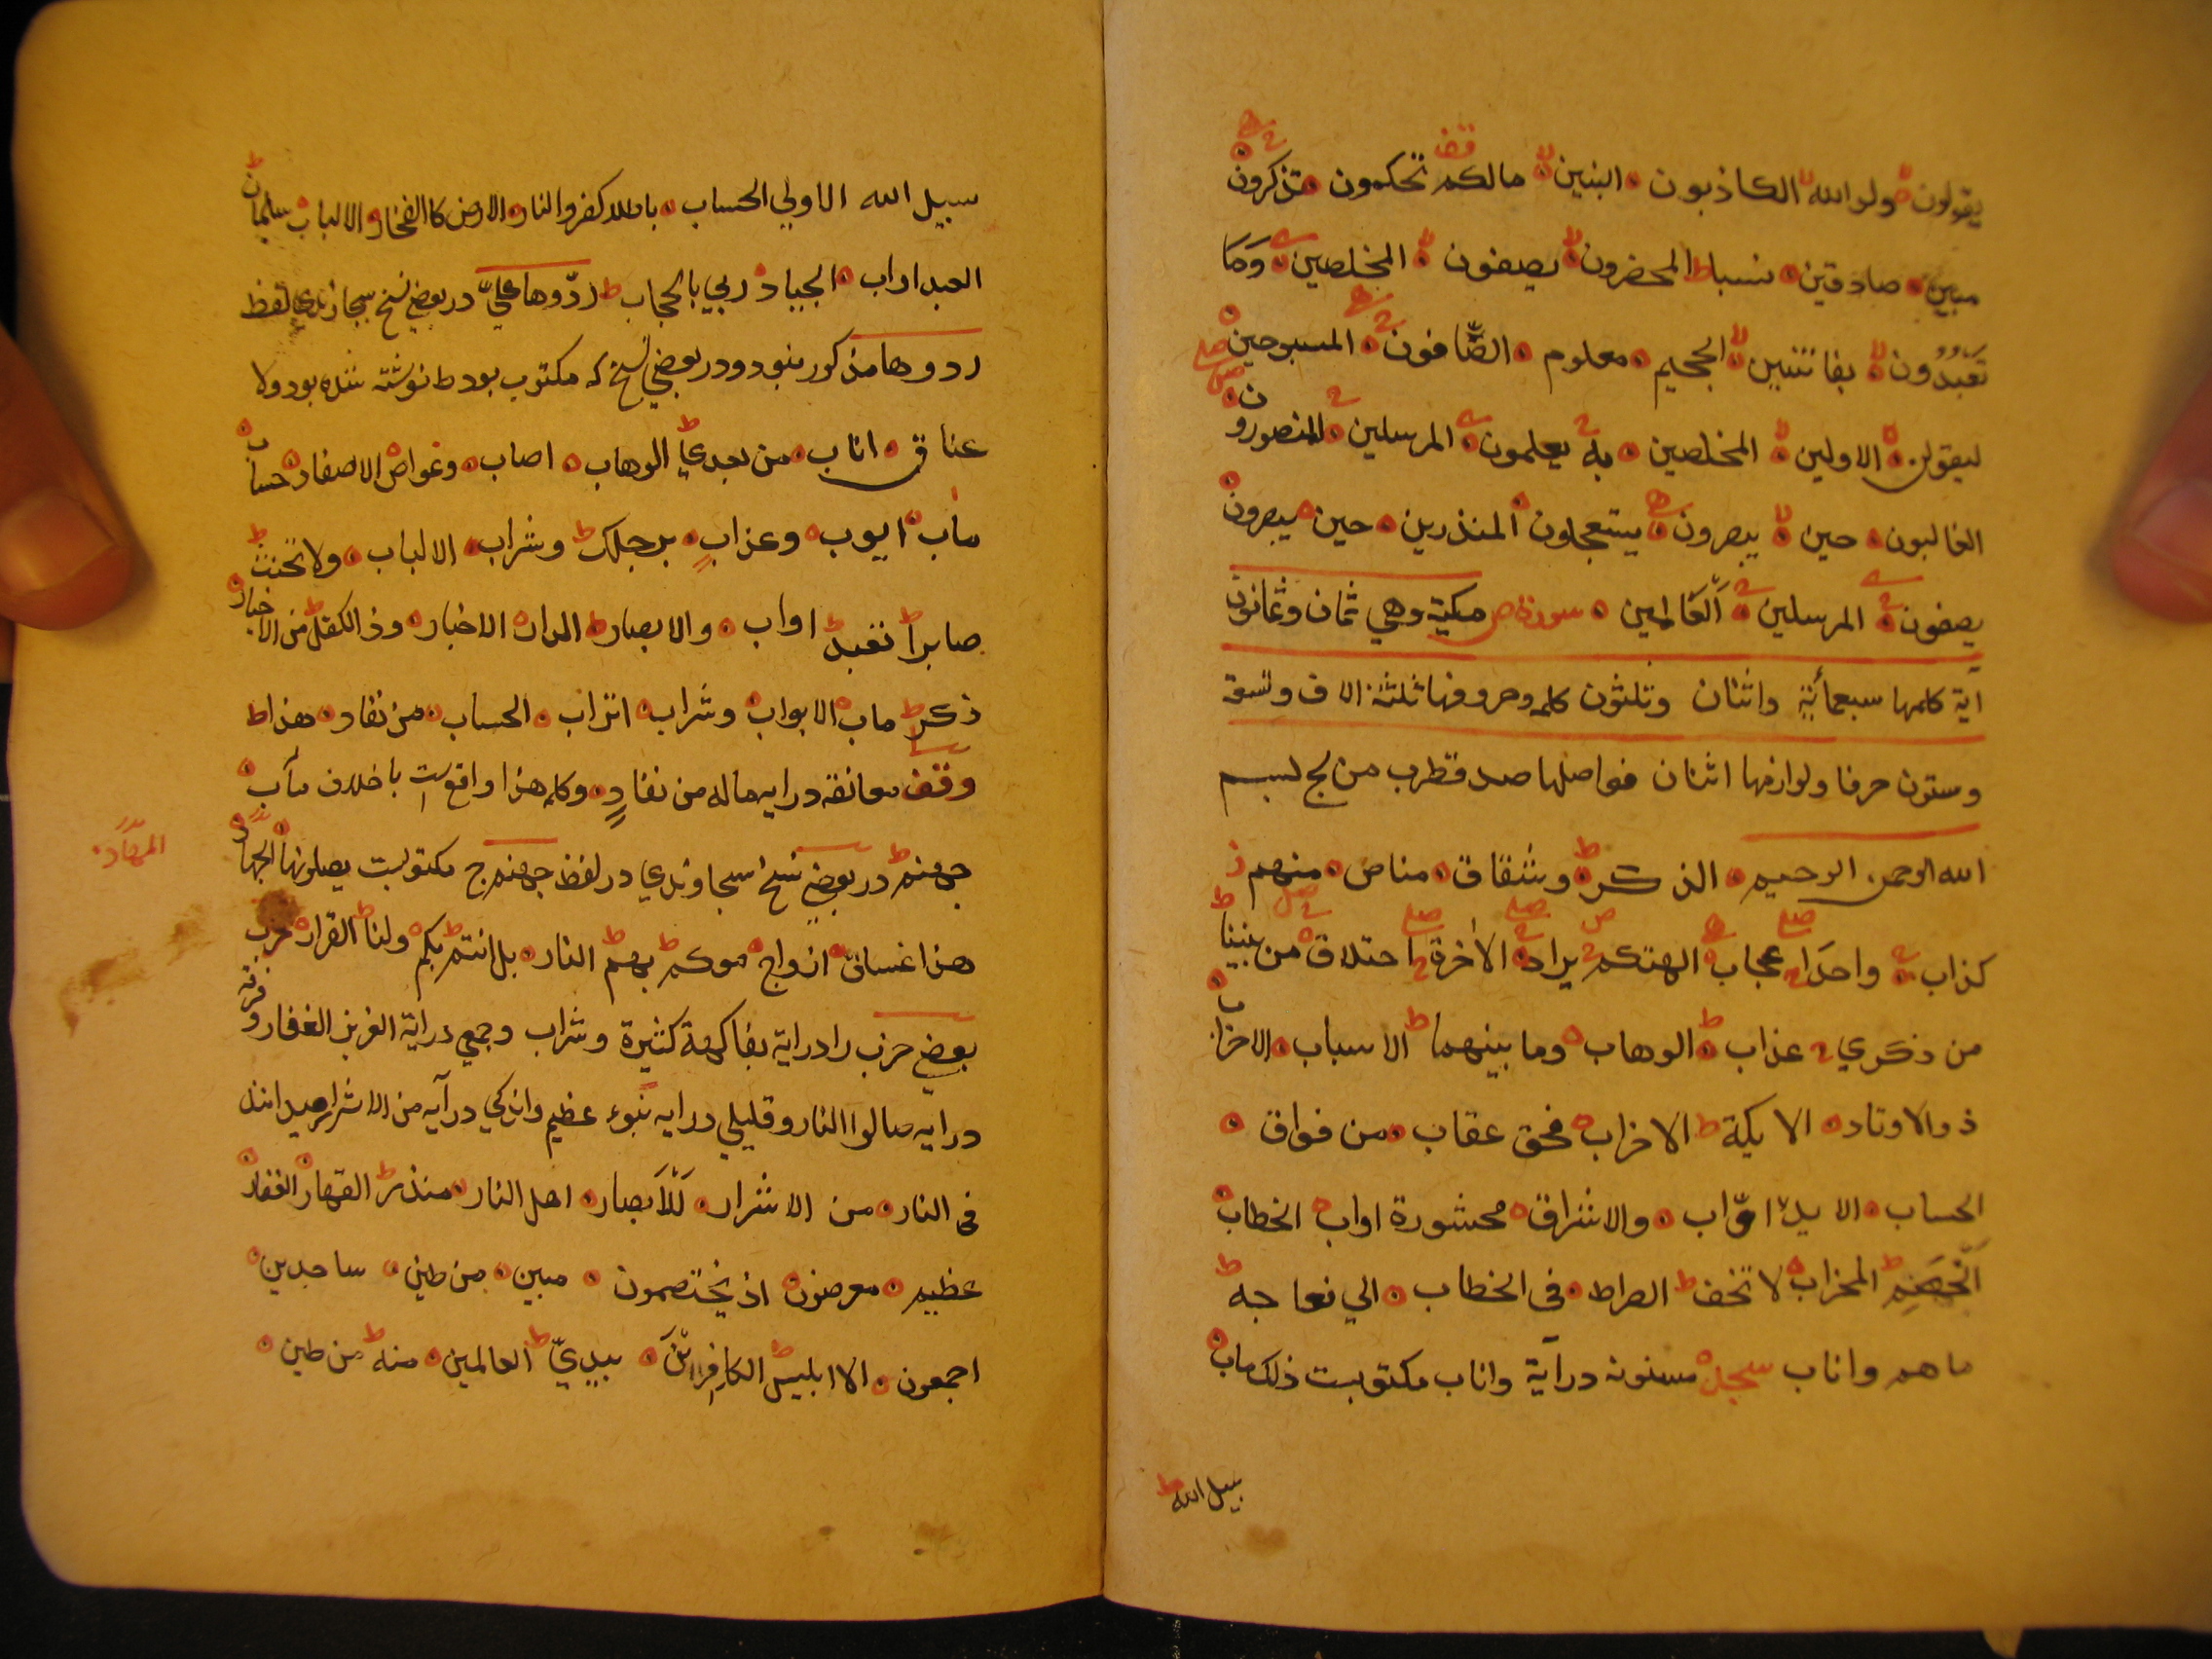 يقولون ولد الله الكاذبون البنين مالكم قف تحكمون تذكرون
مبين صادقين نسبا ط المحضرون يصفون المخلصين وَمَا
تَعْبُدُون بفاتنين الجحيم معلوم الصّافون المسبوحين
ليقولن الاولين المخلصين به يعلمون المرسلين المنصورون
الغالبون حين يبصرون يستعجلون المنذرين حين يبصرون
يصفون المرسلين العَالمين سورة ص مكية وهي ثمان وثمانون
آية كلمها سبعمأية واثنان وثلثون كلمه وحروفها ثلثة الاف وتسعة
وستون حرفا ولوازمها اثنان فواصلها صد قطرب من لج لبسم
الله الرحمن الرحيم الذكر ط وشقاق مناص منهم ز
كذاب واحدَا صلے عجاب الهتكم ص يراد صلے الاٰخرة صلے اختلاق من بيننا ط
من ذكري عذاب ط الوهاب وما بينهما ط الاسباب الاخزاب
ذوالاوتاد الايكة ط الاخزاب فحق عقاب من فواق
الحساب الايد اوّاب والاشراق محشورة اواب الخطاب
الخَصْمِ ط المخراب لا تخف ط الصراط في الخطاب الي نعاجه ط
ما هم واناب سجدة مسنونه درآية واناب مكتوبست ذلك ماب
بيل الله ط
سبيل الله الاولي الحساب باطلا كفروا النار الارض كا الفخار الالباب سليمان ط
العبد اواب الجياد ربي با الحجاب ط ردّوها عليّ در بعضي نسخ سجاوندي لفظ
ردوها مذكور نبود و در بعضي نسخ كه مكتوب بود ط نوشته شده بود ولا
عناق اناب من بعدي ط الوهاب اصاب وغواص الاصفاد حساب
ماب ايوب وعذاب برجلك ط وشراب الالباب ولا تحنث ط
صابرا ط نعبد ط اواب والابصار الدار الاخيار وذا الكفل ط من الاخيار
ذكر ط ماب الابواب وشراب اتراب الحساب من نفاد هذا ط
وقف معانقه درايه ماله من نفادٍ وكلمه هذا واقع است با خلاف مآب
جهنم ط در بعضي نسخ سجاوندي در لفظ جهنم ج مكتوبست يصلونها المهاد
المهاد
هذا غساق ازواج معكم ط بهم ط النار بل انتم ط بكم ولنا ط القرار حزب
بعضي حزب رادراية بفاكهة كثيرة وشراب وجمعي دراية العزيز الغفار وفرقه
درايه صالوا النار وقليلي درايه نبوء عظيم واندكي درآيه من الاشرار ميدانند
في النار من الاشرار للاَبصار اهل النار منذر ط القهار الغفار
عظيم معرضون اذ يختصمون مبين من طين ساجدين
اجمعون الا ابليس ط الكافرين بيديّ ط العالمين منه ط من طين